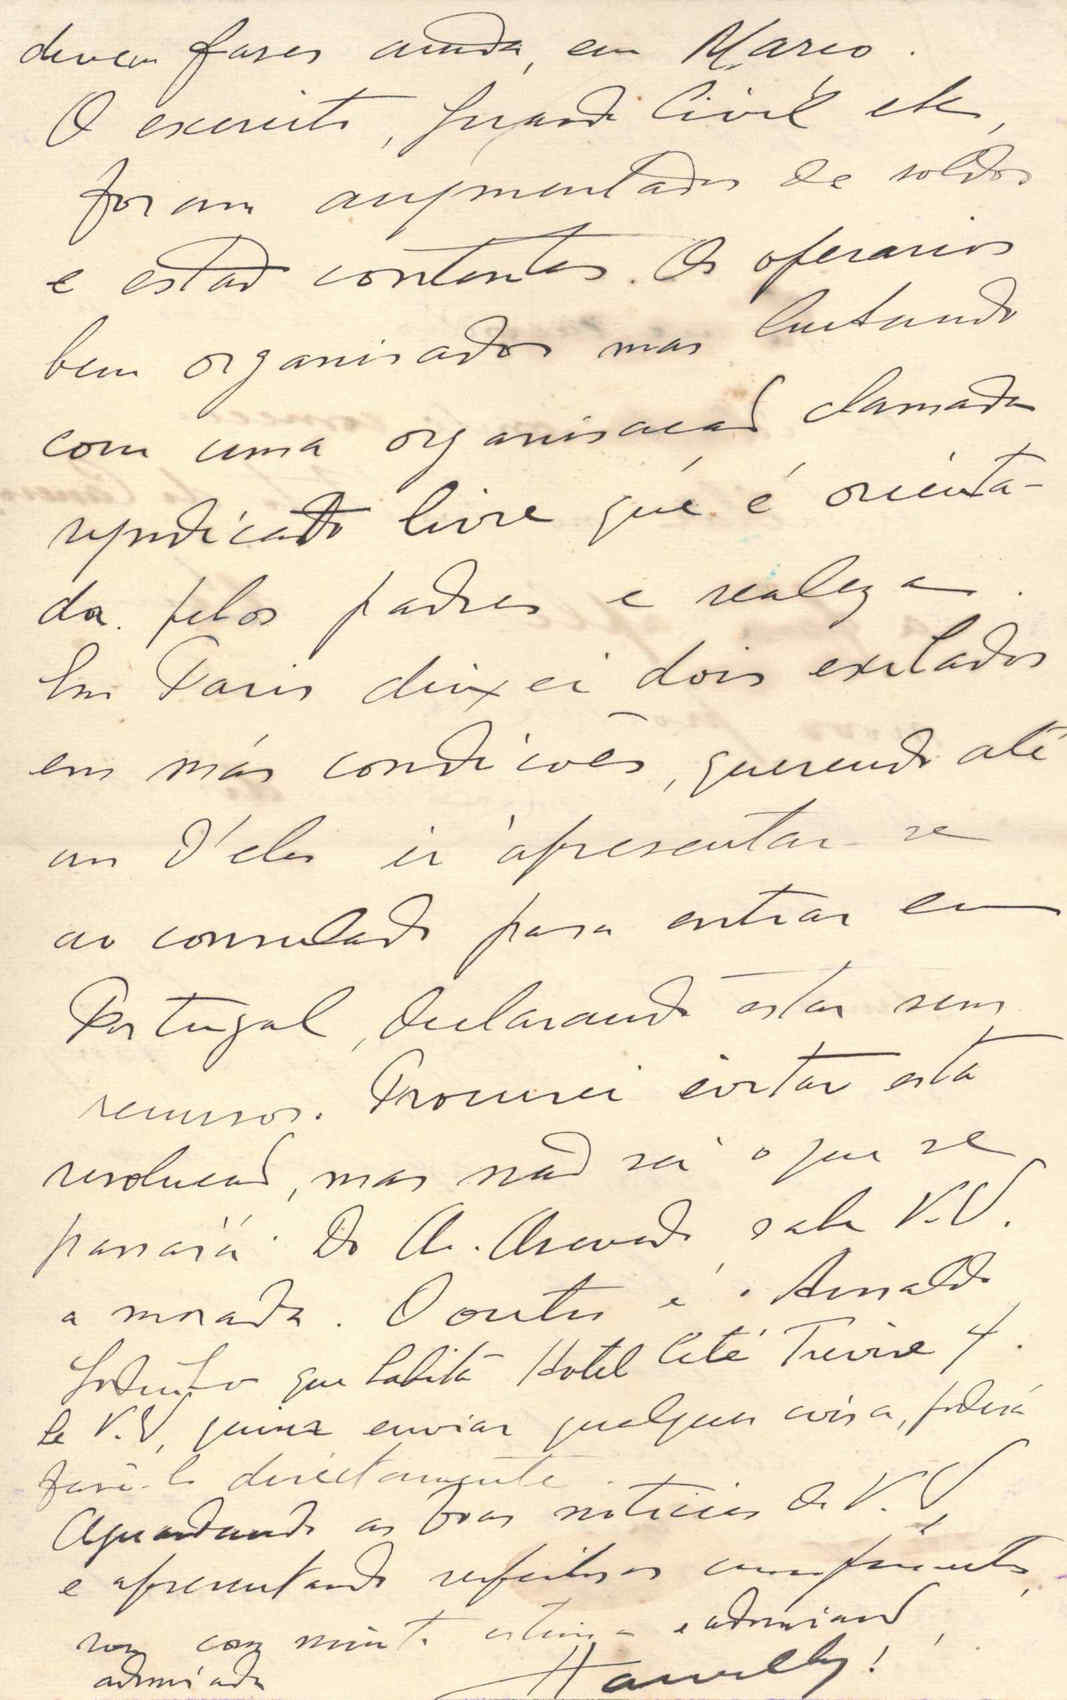 devem fazer ainda, em Março.
O exercito, Guarda Civil etc,
foram augmentados de soldos
e estão contentes. Os operarios
bem organisados mas luctando
com uma organisação chamada
syndicato livre que é orienta-
da pelos padres e realeza.
Em Paris deixei dois exilados
em más condicões, querendo até
um d'eles ir apresentar-se
ao consulado para entrar em
Portugal, declarando estar sem
recursos. Procurei evitar esta
resolucão, mas não sei o que se
passará. Do A. Azevedo sabe V.V.
a morada. O outro é o Arnaldo
que habita Hotel Cité Trevise 4.
Se V.V. quizer enviar qualquer coisa, poderá
fazê-lo directamente.
Aguardando as boas noticias de V.V,
e apresentando respeitosos cumprimentos,
sou com muita estima e admiração,